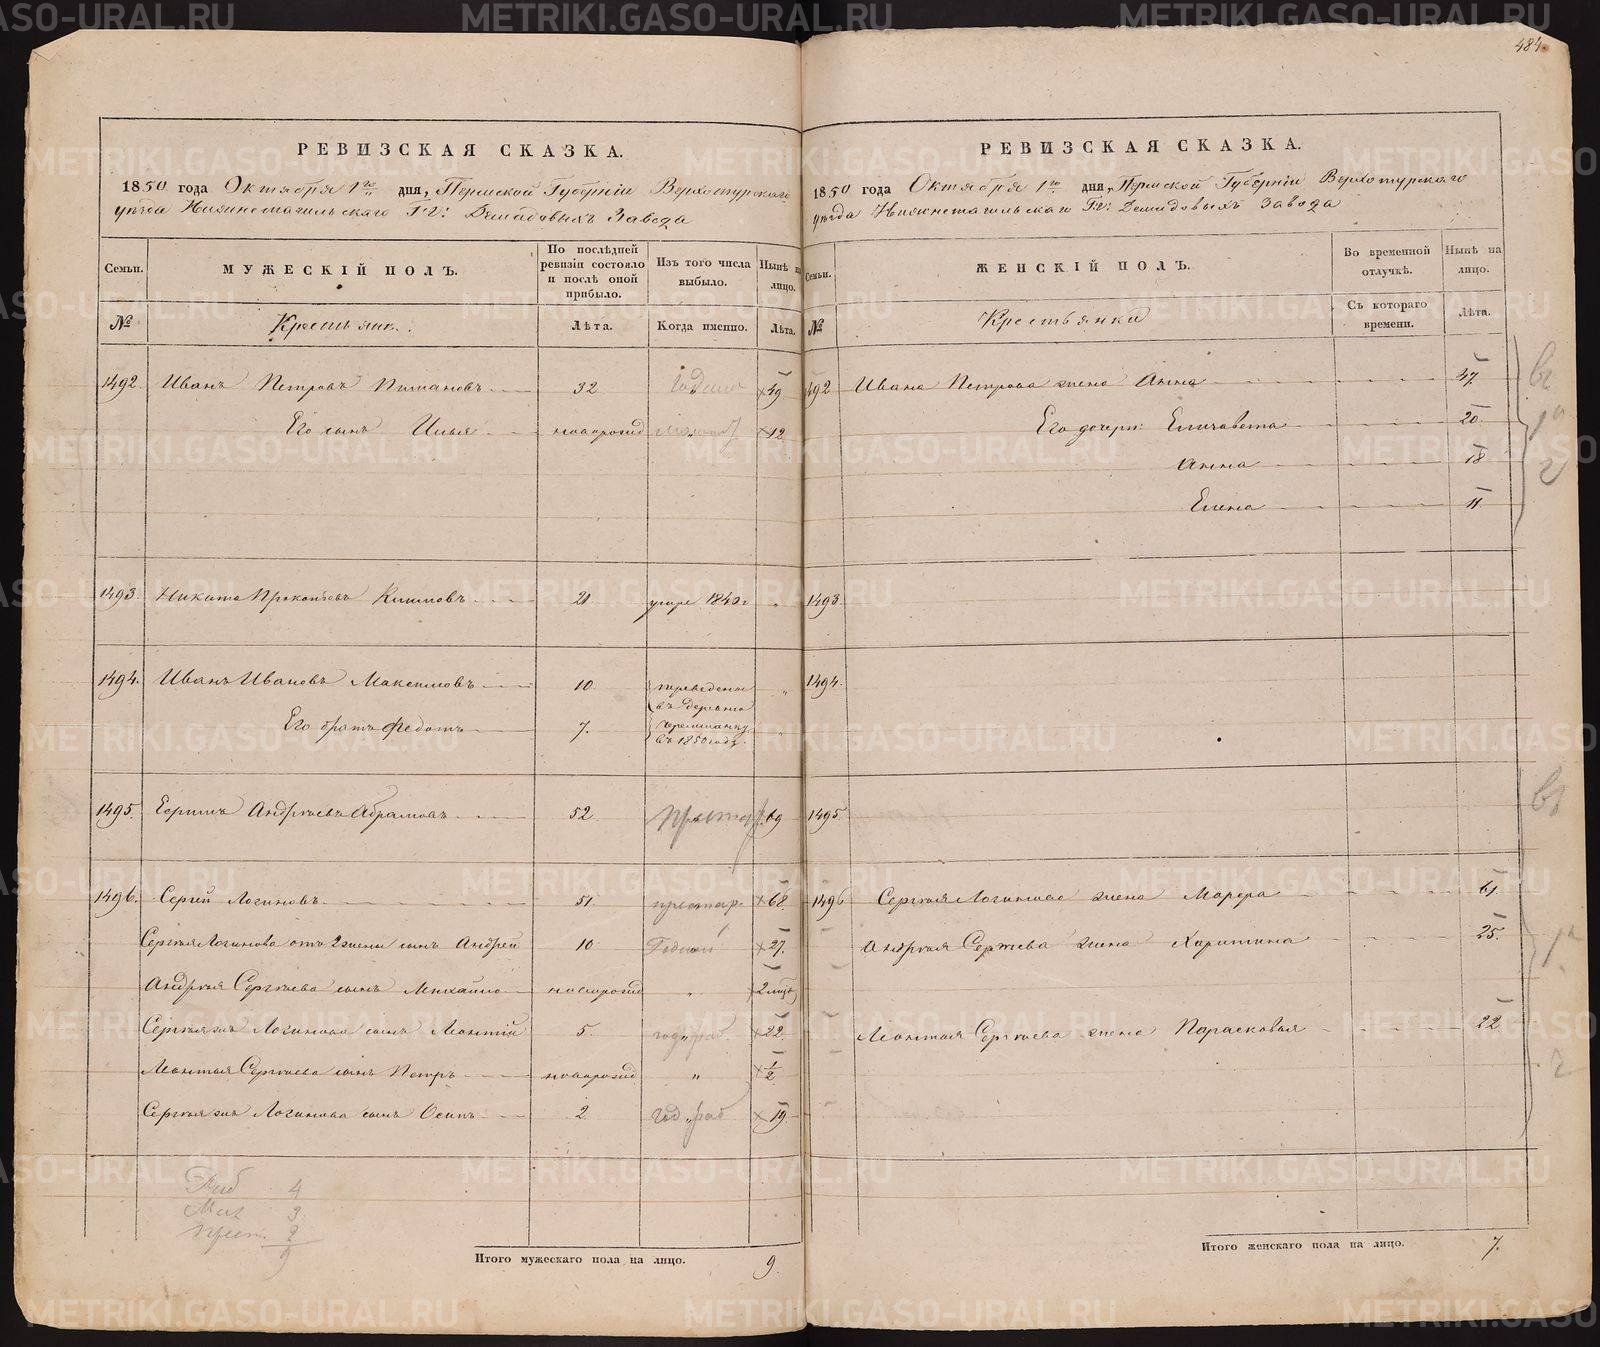 484.
РЕВИЗСКАЯ СКАЗКА.
1850 года Октября 1го дня, Пермской Губерніи Верхотурскаго
уѣзда Нижнетагильскаго Г.г: Демидовыхъ Завода
Семьи.
МУЖЕСКІЙ ПОЛЪ.
По послѣдней ревизіи состояло и послѣ оной прибыло.
Изъ того числа выбыло.
Нынѣ на лицо.
№
Крестьяне.
Лѣта.
Когда именно.
Лѣта.
1492. Иванъ Петровъ 32 Годной 49
Его сынъ Илья новорожд 12
1493. Никита Прокопьевъ Климовъ 21 умре 1840 г „
1494. Иванъ Ивановъ Максимовъ 10 переведены „
въ деревню
Его братъ Федотъ 7. Черемшанку „
въ 1850 году.
1495. Андреевъ Абрамовъ 52 69
1496. Сергей Логиновъ 51 престар. 68
Сергѣя Логинова отъ 2 жены сынъ Андрей 10 Годный 27.
Андрѣя Сергѣева сынъ Михайло новорожд „ 2 мцъ
Сергѣя Логинова сынъ Леонтій 5. год. раб. 22
Леонтья Сергѣева сынъ Петръ новорожд „ 1/2
Сергѣя Логинова сынъ Осипъ 2 год. раб 19
Раб 4
Мал 3
прест. 2
9
Итого мужескаго пола на лицо. 9.
РЕВИЗСКАЯ СКАЗКА.
1850 года Октября 1го дня, Пермской Губерніи Верхотурскаго
уѣзда Нижнетагильскаго Г.г: Демидовыхъ Завода
Семьи.
ЖЕНСКІЙ ПОЛЪ.
Во временной отлучкѣ.
Нынѣ на лицо.
№
Крестьянки
Съ котораго времени.
Лѣта.
1492 Ивана Петрова жена Анна 47.
Его дочери: Елизавета 20
Анна 18
Елена 11
1493.
1494.
1495.
1496 Сергѣя Логинова жена Марфа 61.
Андрѣя Сергѣева жена Харитина 25.
Леонтья Сергѣева жена Парасковья 22
Итого женскаго пола на лицо. 7.
METRIKI.GASO-URAL.RU